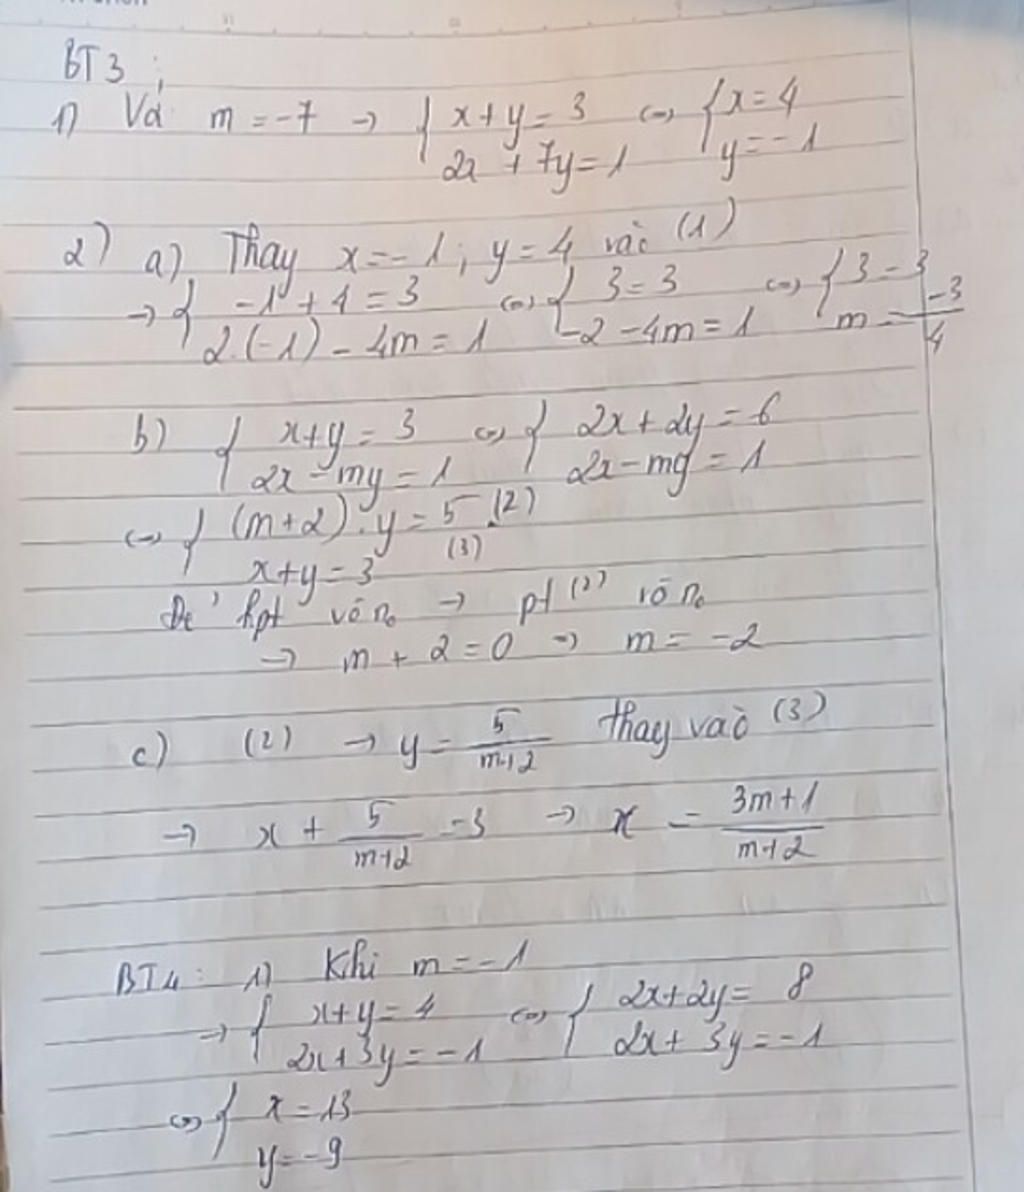 BT3:
1) Vơí m = -7 → { x + y = 3 <=> { x = 4
2x + 7y = 1 y = -1
2) a) Thay x = -1 ; y = 4 vào (1)
→ { -1 + 4 = 3 <=> { 3 = 3 <=> { 3 = 3
2.(-1) - 4m = 1 -2 - 4m = 1 m = -3/4
b) { x+y = 3 <=> { 2x + 2y = 6
2x - my = 1 2x - my = 1
<=> { (m+2).y = 5 (2)
x+y = 3 (3)
Để hpt vô no → pt (2) vô no
→ m + 2 = 0 => m = -2
c) (2) → y = 5/(m+2) thay vào (3)
→ x + 5/(m+2) = 3 → x = (3m+1)/(m+2)
BT4: 1) Khi m = -1
→ { x+y = 4 <=> { 2x+2y = 8
2x+3y = -1 2x + 3y = -1
<=> { x = 13
y = -9